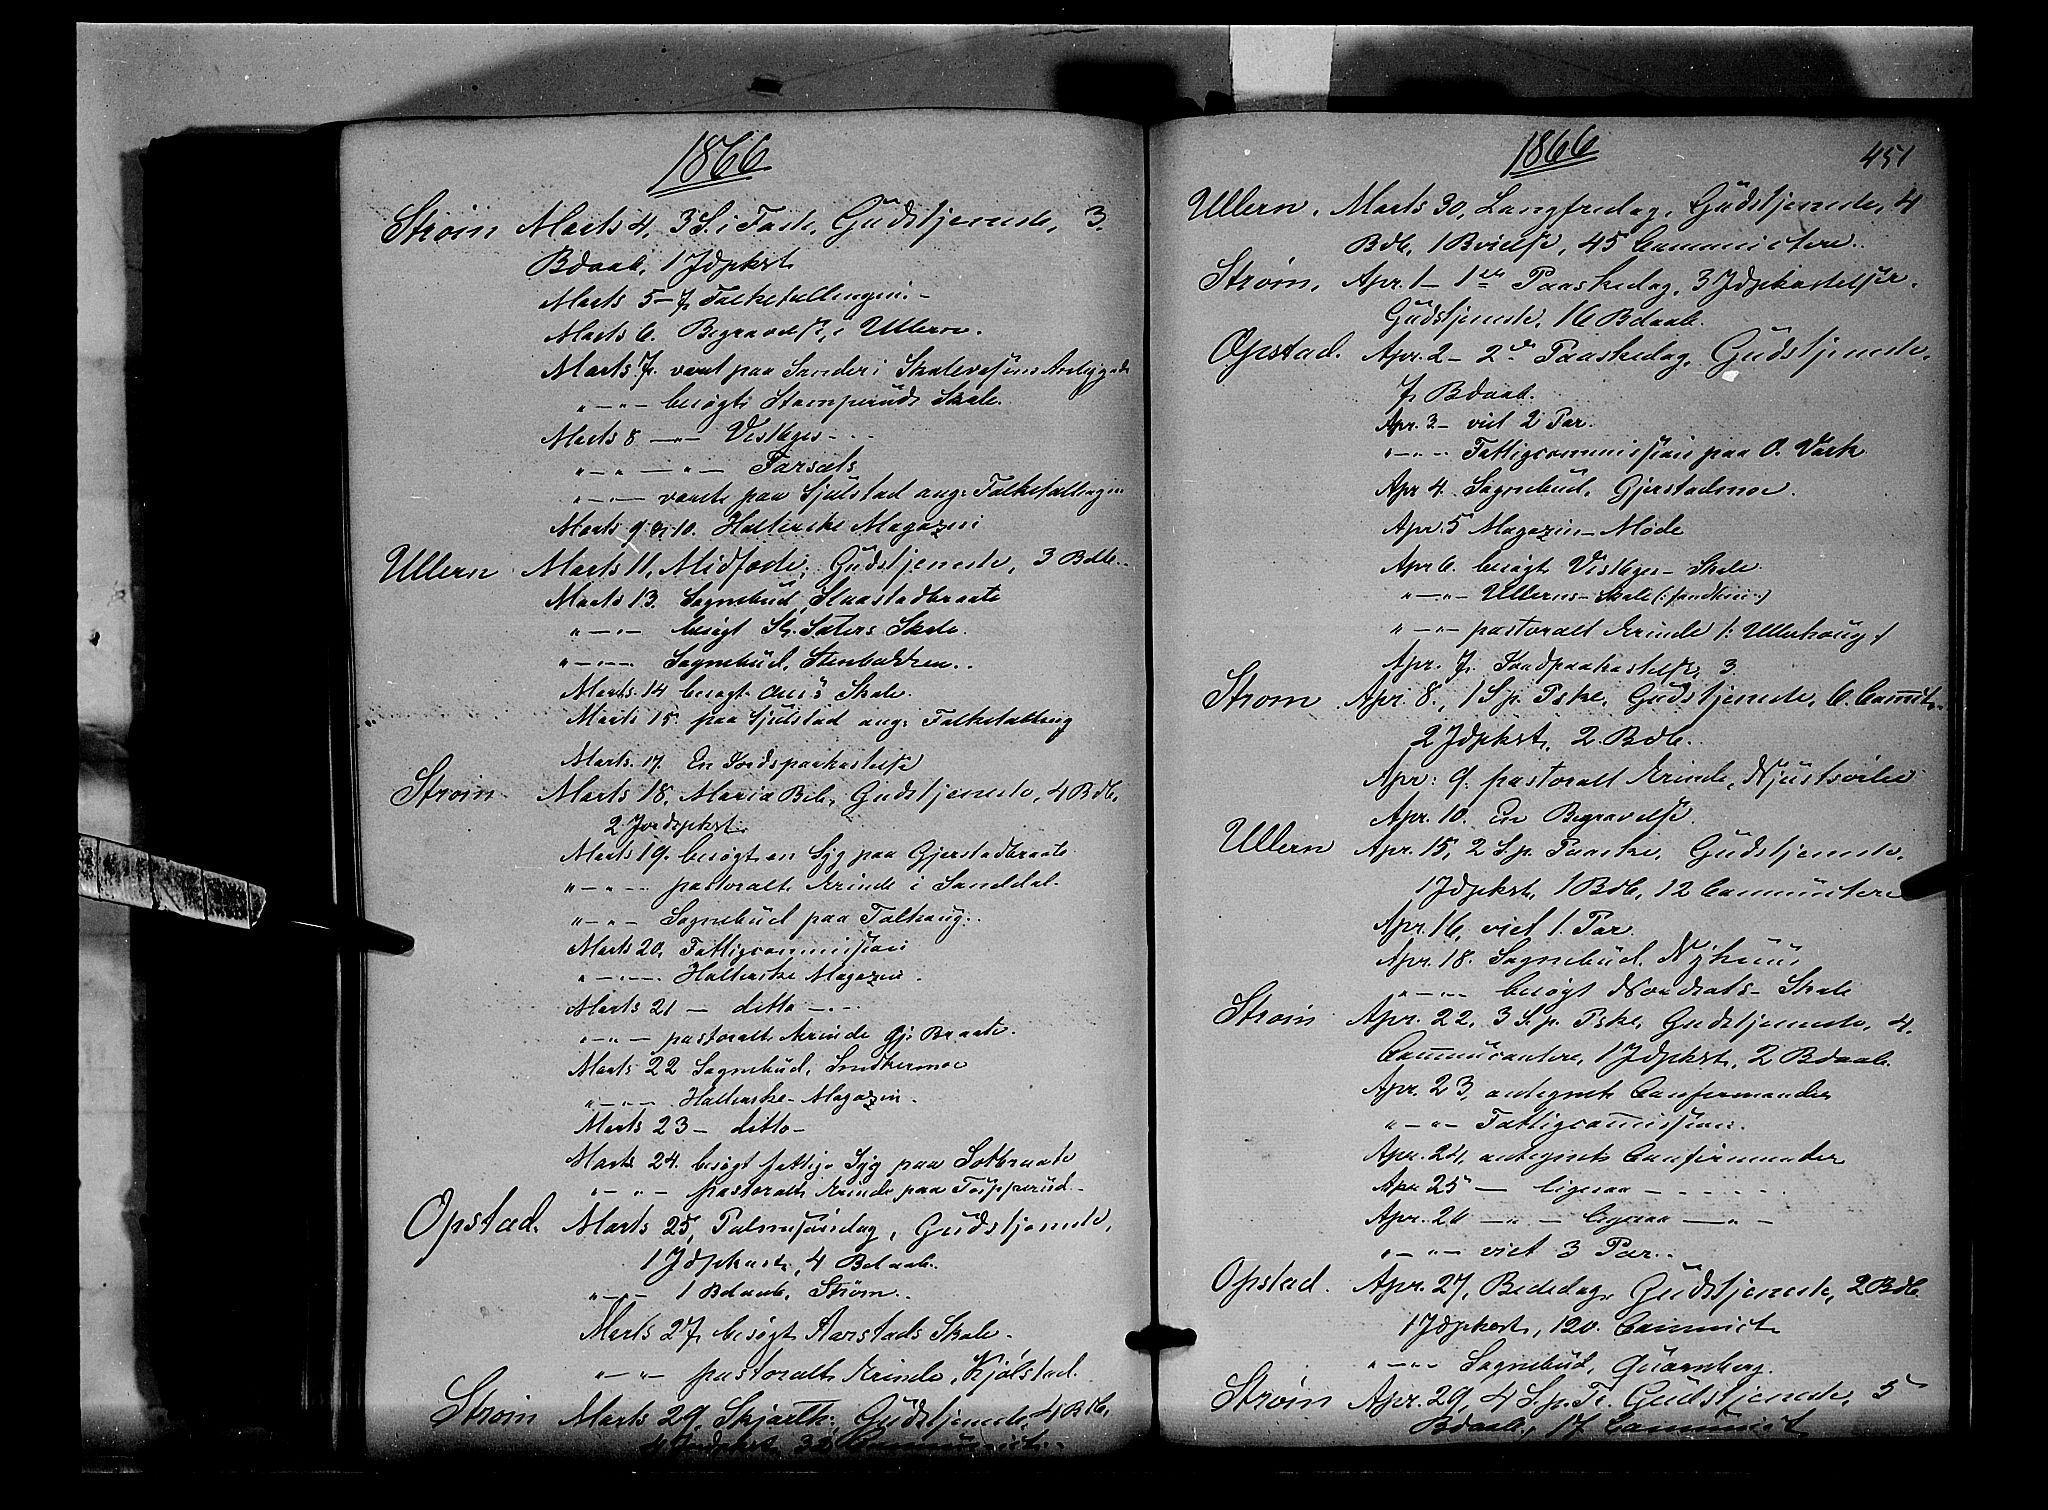 1866
Strøm Marts 4, 3 S. i Faste, Gudstjeneste, 3.
Bdaab, 1 Jdpkst
Marts 5–7, Folketællingen.–
Marts 6. Begravelse, i Ullern.
Marts 7. været paa Sander i Skolevæsens Anliggende
" – " – besøgt Stomperuds Skole.
Marts 8 – " – Vestbyes – " –
" – " – " – Farsæts
" – " – været paa Sjulstad ang: Folketællingen
Marts 9 og 10. Holterske Magazin
Ullern Marts 11, Midfaste, Gudstjeneste, 3 Bdb.
Marts 13. Sognebud, Slaastadbraate
" – " – besøgt St. Sæters Skole.
" – " – Sognebud, Stenbakken.
Marts 14 besøgt Skole.
Marts 15. paa Sjulstad ang: Folketælling
Marts. 17. En Jordspaakastelse
Strøm Marts 18, Maria Beb, Gudstjeneste, 4 Bdb,
2 Jordspkst.
Marts 19. besøgt en Syg paa Gjerstadbraate
" – " – pastoralt Ærinde i Sanddal.
" – " – Sognebud paa Folhaug.
Marts 20, Fattigcommission
" – " – Holterske Magazin.
Marts 21 – ditto – " –
" – " – pastoralt Ærinde Gj: Braate.
Marts 22 Sognebud, Snekkermoe
" – " – Holterske – Magazin.
Marts 23 – ditto –
Marts 24. besøgt fattige Syg paa Sotbraate
" – " – pastoralt Ærinde paa Topperud
Opstad. Marts 25, Palmesøndag, Gudstjeneste,
1 Jdpkast, 4 Bdaab.
" – " – 1 Bdaab, Strøm.
Marts 27, besøgt Aarstads Skole.
" – " – pastoralt Ærinde, Kjølstad.
Strøm Marts 29, Skjærth: Gudstjeneste, 4 Bdb,
4 Jordpkst, 32 Communict.
1866 451
Ullern. Marts 30, Langfredag, Gudstjeneste, 4
Bdb, 1 Bvielse, 45 Communictere.
Strøm. Apr. 1 – 1ste Paaskedag, 3 Jdpkastelser.
Gudstjeneste, 16 Bdaab.
Opstad. Apr. 2 – 2den Paaskedag, Gudstjeneste,
7 Bdaab.
Apr. 3 – viet 2 Par.
" – " – Fattigcommission paa O. Værk
Apr 4. Sognebud, Gjerstadmoe.
Apr. 5 Magazin – Møde
Apr 6. besøgt Vestbyes – Skole
" – " – Ullerns – Skole
" – " – pastoralt Ærinde /: Ullerhoug /
Apr. 7. Jordpaakastelse, 3
Strøm Apr. 8., 1 S. p. Pske, Gudstjeneste, 6. Commct.
2 Jdpkst, 2 Bdb.
Apr: 9. pastoralt Ærinde,
Apr. 10. En Begravelse.
Ullern Apr. 15, 2 S. p. Paaske, Gudstjeneste,
1 Jdpkst, 1 Bdb, 12 Communictere
Apr. 16, viet 1. Par
Apr. 18. Sognebud, Nyhuus
" – " – besøgt – Skole
Strøm Apr. 22, 3 S. p. Pske, Gudstjeneste, 4.
Communicantere, 1 Jdpkst, 2 Bdaab.
Apr. 23, antegnet Confirmander
" – " – Fattigcommission.
Apr. 24, antegnet Confirmander
Apr 25 – ligesaa – – –
Apr. 26 – " – ligesaa – " –
" – " – viet 3 Par.
Opstad. Apr. 27, Bededag, Gudstjeneste, 2 Bdb
1 Jdpkst, 120. Communict
" – " – Sognebud, Quarnberg.
Strøm Apr. 29, 4 S. p. P. Gudstjeneste, 5
Bdaab, 17 Communict